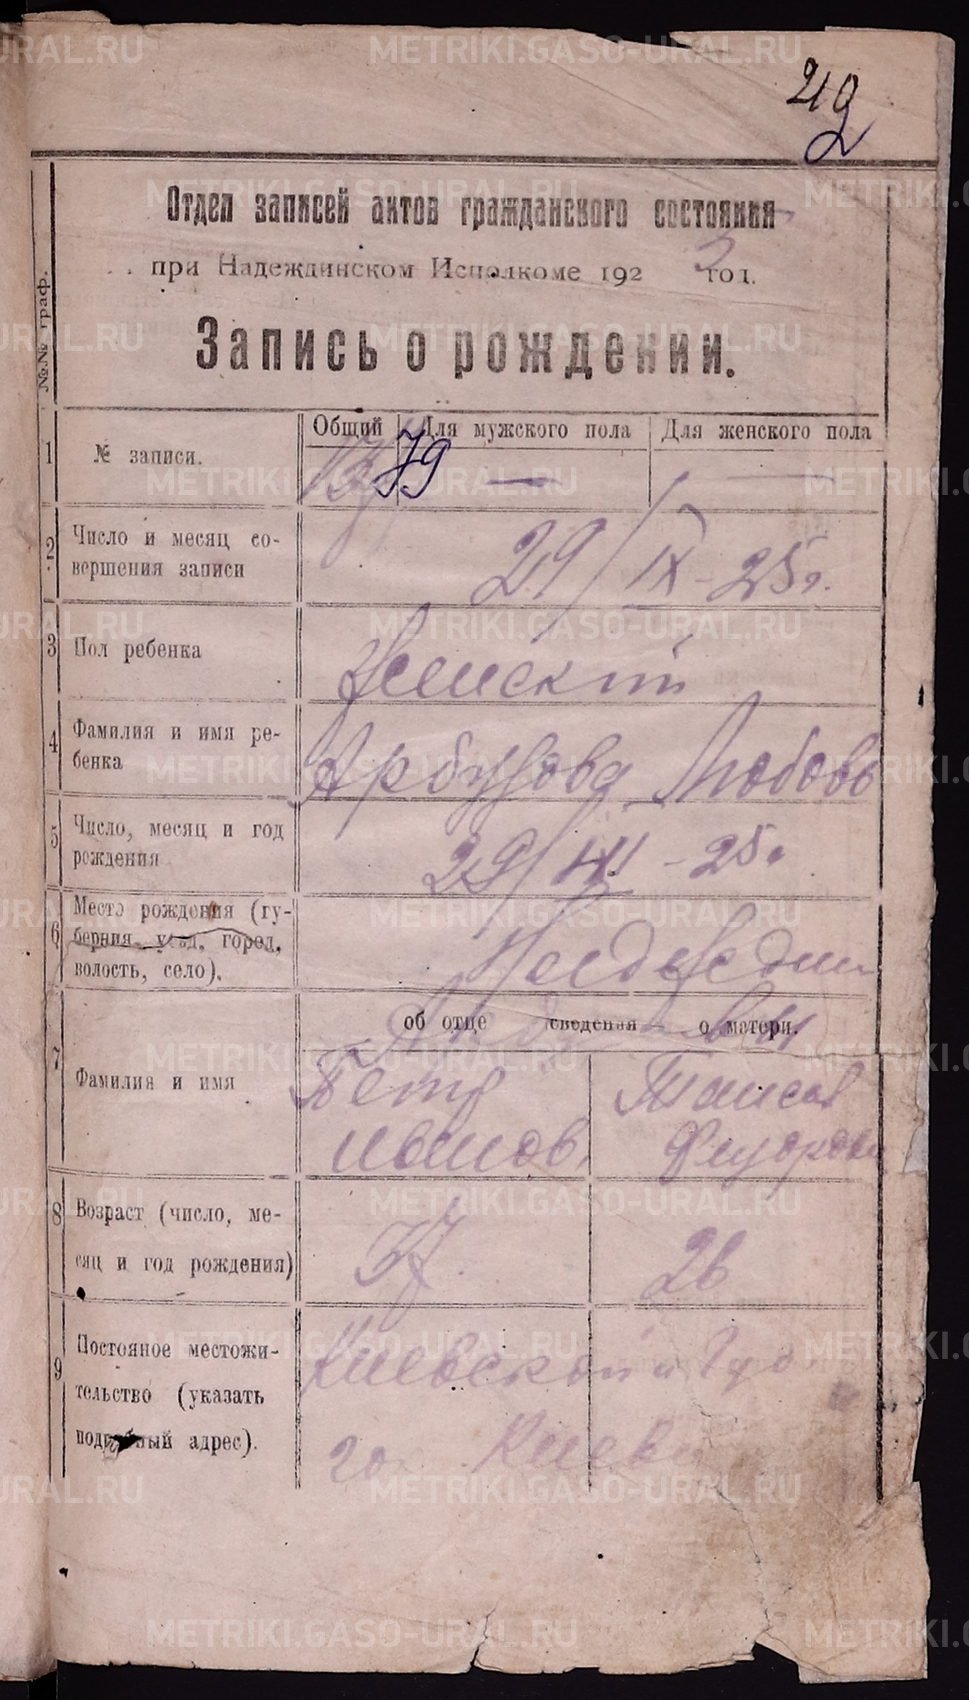 Отдел записей актов гражданского состояния
при Надеждинском Исполкоме 1925 год.
Запись о рождении.
№№ граф.
Общий Для мужского пола Для женского пола
1 № записи. 79 —
2 Число и месяц со-
вершения записи
29/IX - 25 г.
3 Пол ребенка Женский
4 Фамилия и имя ре-
бенка
Арбузова Любовь
5 Число, месяц и год
рождения
29/ - 25 г
6 Место рождения (гу-
берния, уезд, город,
волость, село).
об отце сведения о матери.
7 Фамилия и имя
Петр Таисия
Иванов.
8 Возраст (число, ме-
сяц и год рождения)
37 26
9 Постоянное местожи-
тельство (указать
подробный адрес).
Киевской Губ
го Киев
METRIKI.GASO-URAL.RU